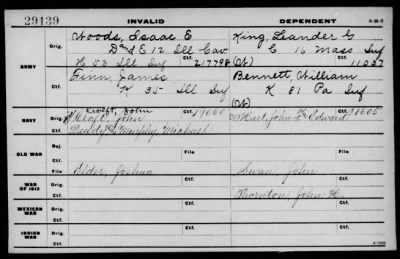 29139 INVALID DEPENDENT
Woods, Isaac E King, Leander G
ARMY Orig. D E 12 Ill Cav C 16 Mass Inf
Ctf. H 53 Ill Inf 217798 (W) 11037
Finn, James Bennett, William
K 35 Ill Inf (W) K 81 Pa Inf
Kroft, John
NAVY Orig. Croft, John Ctf. 19060 Hart, John Edward Ctf. 31605
Ctf. Murphy, Michael
OLD WAR File File
WAR OF 1812 Orig. Elder, Joshua Ctf. Swan, John Ctf.
Ctf. Thornton, John H.
MEXICAN WAR Orig. Ctf. Ctf.
Ctf.
INDIAN WAR Orig. Ctf. Ctf.
Ctf.